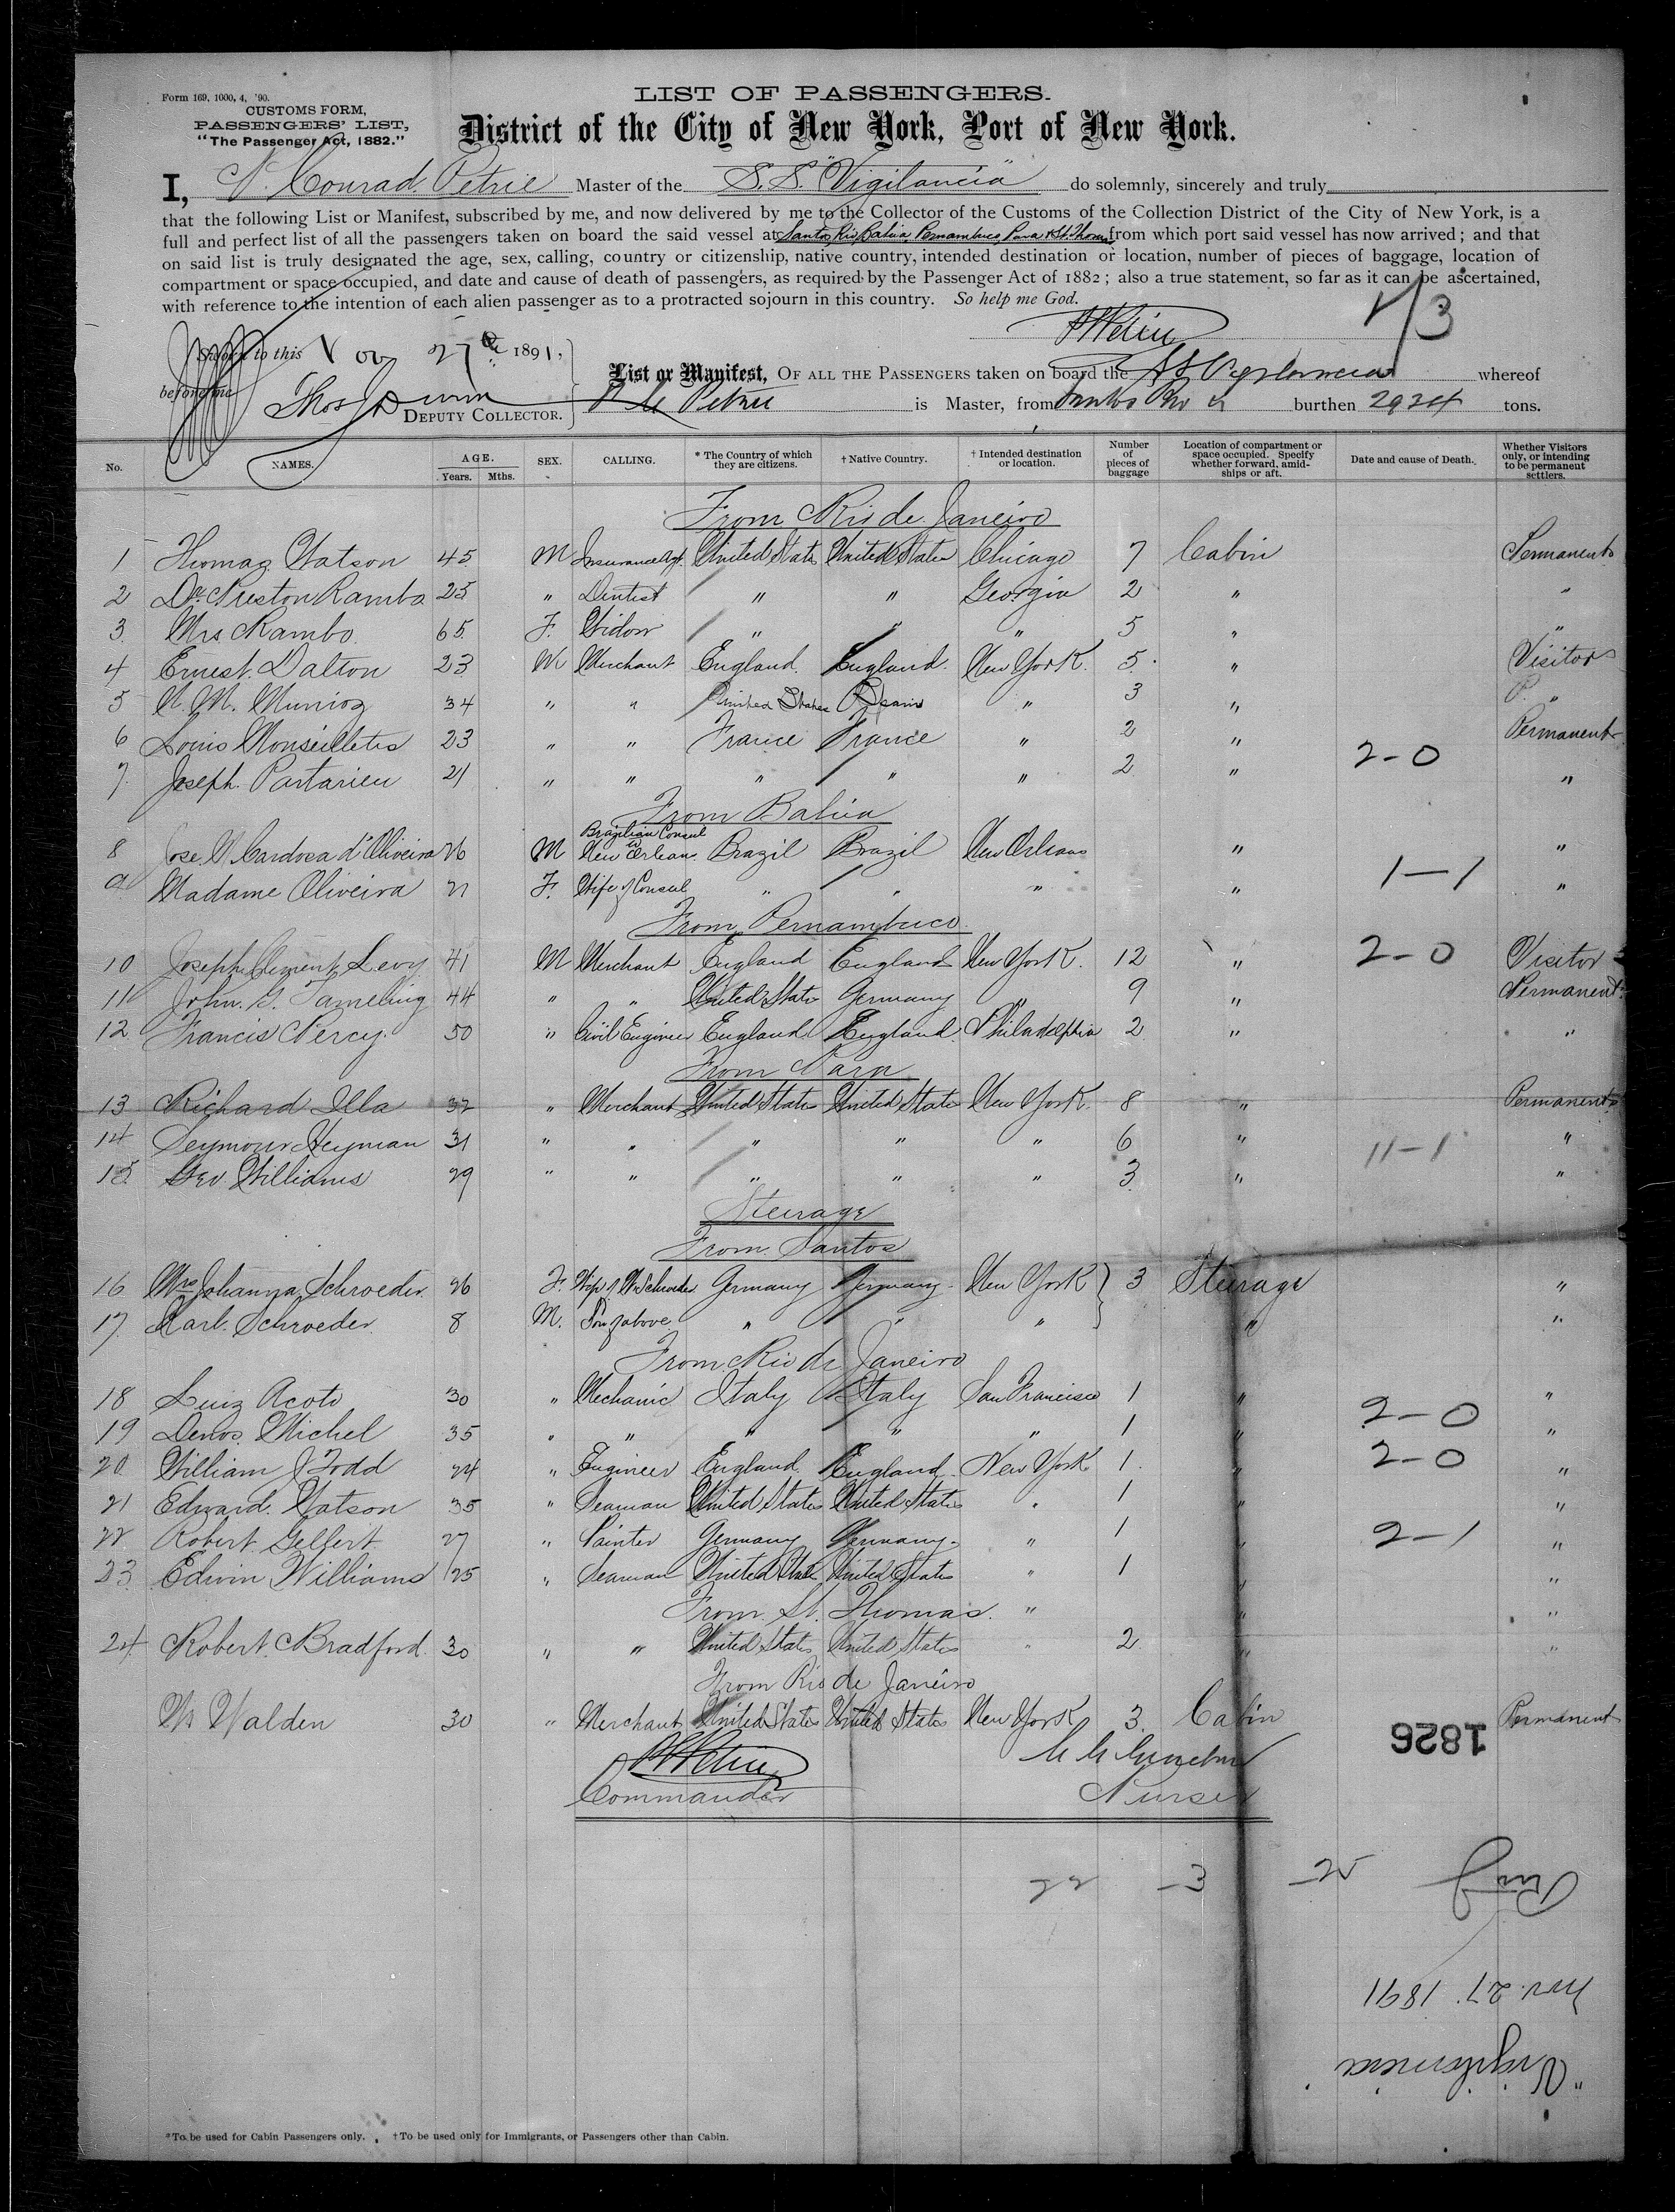 Form 169, 1000, 4, '90.
CUSTOMS FORM,
PASSENGERS' LIST,
"The Passenger Act, 1882."
LIST OF PASSENGERS.
District of the City of New York, Port of New York.
I, Conrad Petrie Master of the S.S. "Vigilancia" do solemnly, sincerely and truly
that the following List or Manifest, subscribed by me, and now delivered by me to the Collector of the Customs of the Collection District of the City of New York, is a
full and perfect list of all the passengers taken on board the said vessel at Santos, Rio, Bahia, Pernambuco, Para & St. Thomas from which port said vessel has now arrived; and that
on said list is truly designated the age, sex, calling, country or citizenship, native country, intended destination or location, number of pieces of baggage, location of
compartment or space occupied, and date and cause of death of passengers, as required by the Passenger Act of 1882; also a true statement, so far as it can be ascertained,
with reference to the intention of each alien passenger as to a protracted sojourn in this country. So help me God.
Sworn to this Nov 27 1891,
before me
Thos J Dunn
DEPUTY COLLECTOR.
List or Manifest, OF ALL THE PASSENGERS taken on board the SS Vigilancia whereof
Petrie is Master, from Santos Rio & burthen 2934 tons.
No. NAMES. AGE. Years. Mths. SEX. CALLING. * The Country of which they are citizens. † Native Country. † Intended destination or location. Number of pieces of baggage Location of compartment or space occupied. Specify whether forward, amid-ships or aft. Date and cause of Death. Whether Visitors only, or intending to be permanent settlers.
From Rio de Janeiro
1 Thomas Watson 45 M Insurance Agt. United States United States Chicago 7 Cabin Permanent
2 Dr. Preston Rambo 25 " Dentist " " Georgia 2 " "
3 Mrs Rambo 65 F. Widow " " " 5 " "
4 Ernest Dalton 23 M Merchant England England New York. 5 " Visitor
5 M. Munioz 34 " " United States " 3 " P. "
6 Louis 23 " " France France " 2 " Permanent
7 Joseph Partarieu 21 " " " " " 2 " 2-0 "
From Bahia
8 Jose Cardosa d'Oliveira 26 M Brazilian Consul to New Orleans Brazil Brazil New Orleans " "
9 Madame Oliveira 21 F. Wife of Consul " " " " 1-1 "
From Pernambuco
10 Joseph Clement Levy 41 M Merchant England England New York. 12 " 2-0 Visitor
11 John G. Tameling 44 " " United States Germany " 9 " Permanent
12 Francis Percy 50 " Civil Engineer England England Philadelphia 2 " "
From Para
13 Richard Illa 32 " Merchant United States United States New York 8 " Permanent
14 Seymour Heyman 31 " " " " " 6 " 11-1 "
15 Geo Williams 29 " " " " " 3 " "
Steerage
From Santos
16 Mrs Johanna Schroeder 26 F. Wife of Schroeder Germany Germany New York 3 Steerage "
17 Karl Schroeder 8 M. Son of above " " " " "
From Rio de Janeiro
18 Luiz Acoto 30 " Mechanic Italy Italy San Francisco 1 " "
19 Denos Michel 35 " " " " " 1 " 2-0 "
20 William J Todd 24 " Engineer England England New York 1 " 2-0 "
21 Edward Watson 35 " Seaman United States United States " 1 " "
22 Robert Gellert 27 " Painter Germany Germany " 1 " 2-1 "
23 Edwin Williams 25 " Seaman United States United States " 1 " "
From St. Thomas. " " "
24 Robert Bradford 30 " " United States United States " 2 " "
From Rio de Janeiro
Walden 30 " Merchant United States United States New York 3 Cabin Permanent
1826
Commander
Purser
22 -3 -25
Nov. 27. 1891
"Vigilancia
*To be used for Cabin Passengers only. †To be used only for Immigrants, or Passengers other than Cabin.